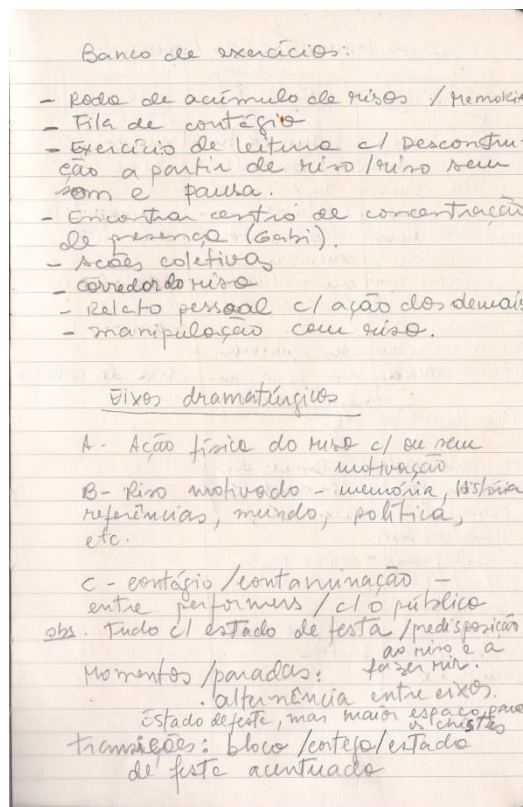 Banco de exercícios:
- Roda de acúmulo de risos / Memória
- Fila de contágio
- Exercício de leitura c/ Desconstru-
ção a partir de riso / riso sem
som e pausa.
- Encontrar centro de concentração
de presença (Gabi).
- Ações coletivas
- corredor do riso
- Relato pessoal c/ ação dos demais
- manipulação com riso.
Eixos dramatúrgicos
A - Ação física do riso c/ ou sem
motivação
B - Riso motivado - memória, história
referências, mundo, política,
etc.
C - contágio / contaminação -
entre performers / c/ o público
obs. Tudo c/ estado de festa / predisposição
ao riso e a
fazer rir.
Momentos / paradas:
. alternância entre eixos.
Estado de festa, mas maior espaço para
os chistes
transições: bloco / cortejo / estado
de festa acentuado